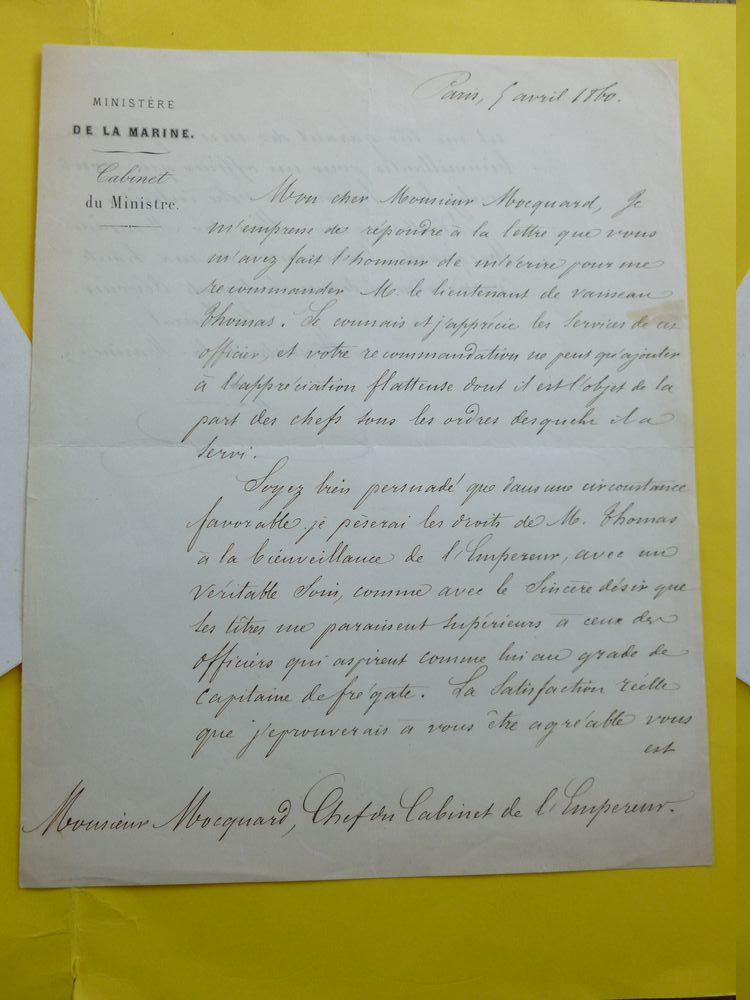 MINISTÈRE
DE LA MARINE.
Cabinet
du Ministre.
Paris, 5 avril 1860.
Mon cher Monsieur Mocquard, Je
m'empresse de répondre à la lettre que vous
m'avez fait l'honneur de m'écrire pour me
recommander M. le lieutenant de vaisseau
Thomas. Je connais et j'apprécie les services de cet
officier, et votre recommandation ne peut qu'ajouter
à l'appréciation flatteuse dont il est l'objet de la
part des chefs sous les ordres desquels il a
servi.
Soyez bien persuadé que dans une circonstance
favorable je pèserai les droits de M. Thomas
à la bienveillance de l'Empereur, avec un
véritable soin, comme avec le sincère désir que
ses titres me paraissent supérieurs à ceux des
officiers qui aspirent comme lui au grade de
capitaine de frégate. La satisfaction réelle
que j'eprouverais à vous être agréable vous
est
Monsieur Mocquard, Chef du Cabinet de l'Empereur.